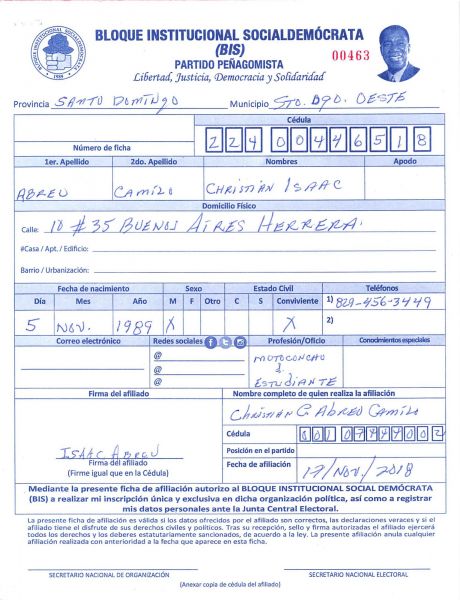 BLOQUE INSTITUCIONAL SOCIALDEMÓCRATA
(BIS)
PARTIDO PEÑAGOMISTA
Libertad, Justicia, Democracia y Solidaridad
00463
Provincia SANTO DOMINGO Municipio STO. DGO. OESTE
Cédula
Número de ficha 224 0044651 8
1er. Apellido 2do. Apellido Nombres Apodo
ABREU CAMILO CHRISTIAN ISAAC
Domicilio Físico
Calle: 10 # 35 BUENOS AIRES HERRERA.
#Casa / Apt. / Edificio:
Barrio / Urbanización:
Fecha de nacimiento Sexo Estado Civil Teléfonos
Día Mes Año M F Otro C S Conviviente 1) 829-456-3449
5 NOV. 1989 X X 2)
Correo electrónico Redes sociales Profesión/Oficio Conocimientos especiales
@ MOTOCONCHO
@
@ ESTUDIANTE
Firma del afiliado Nombre completo de quien realiza la afiliación
CHRISTIAN C. ABREU CAMILO
Cédula 001 0744400 2
ISAAC ABREU Posición en el partido
Firma del afiliado Fecha de afiliación 17/NOV./2018
(Firme igual que en la Cédula)
Mediante la presente ficha de afiliación autorizo al BLOQUE INSTITUCIONAL SOCIAL DEMÓCRATA
(BIS) a realizar mi inscripción única y exclusiva en dicha organización política, así como a registrar
mis datos personales ante la Junta Central Electoral.
La presente ficha de afiliación es válida si los datos ofrecidos por el afiliado son correctos, las declaraciones veraces y si el
afiliado tiene el disfrute de sus derechos civiles y políticos. Tras su recepción, sello y firma autorizadas el afiliado ejercerá
todos los derechos y los deberes estatutariamente sancionados, de acuerdo a la ley. La presente afiliación anula cualquier
afiliación realizada con anterioridad a la fecha que aparece en esta ficha.
SECRETARIO NACIONAL DE ORGANIZACIÓN SECRETARIO NACIONAL ELECTORAL
(Anexar copia de cédula del afiliado)